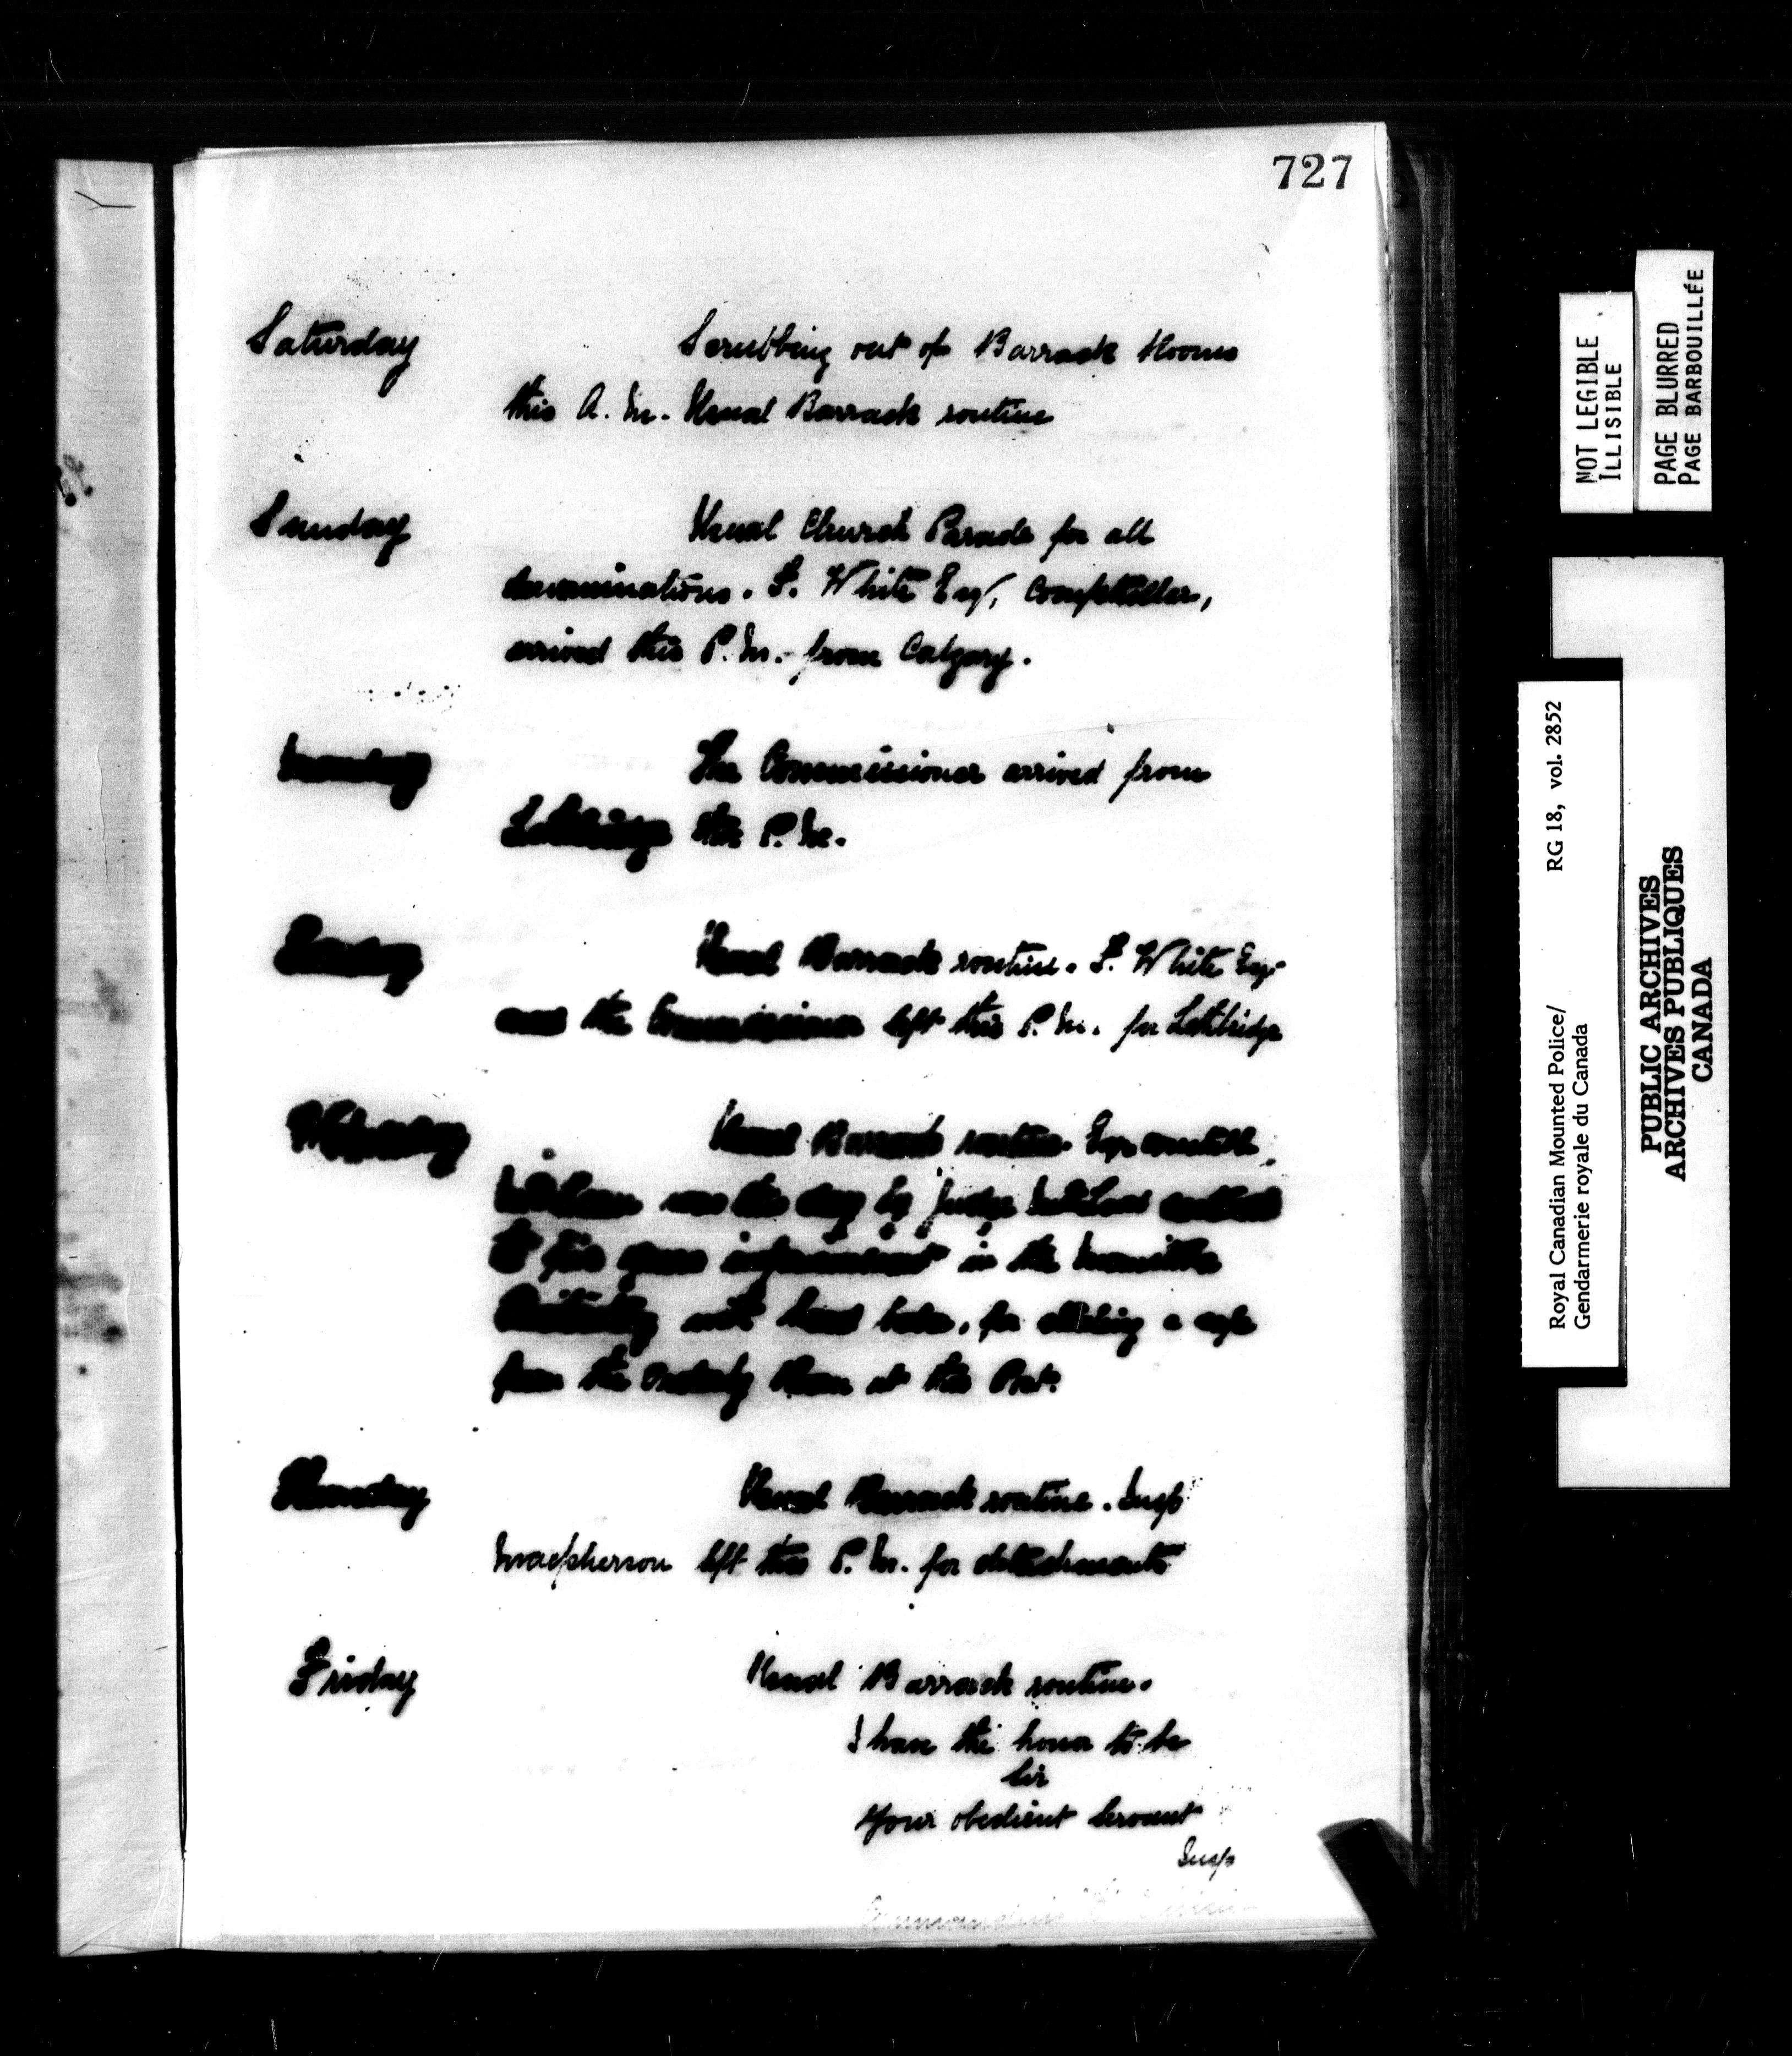 727
Saturday Scrubbing out of Barrack Rooms
this A.M. Usual Barrack routine
Sunday Usual Church Parade for all
denominations. F. White Esq, Comptroller,
arrived this P.M. from Calgary.
Monday The Commissioner arrived from
Lethbridge this P.M.
Tuesday Usual Barrack routine. F. White Esq.
and the Commissioner left this P.M. for Lethbridge
Wednesday Usual Barrack routine. Ex Constable
was this day by Judge
to five years imprisonment in the Manitoba
Penitentiary with hard labor, for
from the Orderly Room at this Post.
Thursday Usual Barrack routine. Insp
Macpherson left this P.M. for detachments
Friday Usual Barrack routine.
I have the honor to be
Sir
Your obedient Servant
Insp
NOT LEGIBLE
ILLISIBLE
PAGE BLURRED
PAGE BARBOUILLÉE
Royal Canadian Mounted Police/ RG 18, vol. 2852
Gendarmerie royale du Canada
PUBLIC ARCHIVES
ARCHIVES PUBLIQUES
CANADA